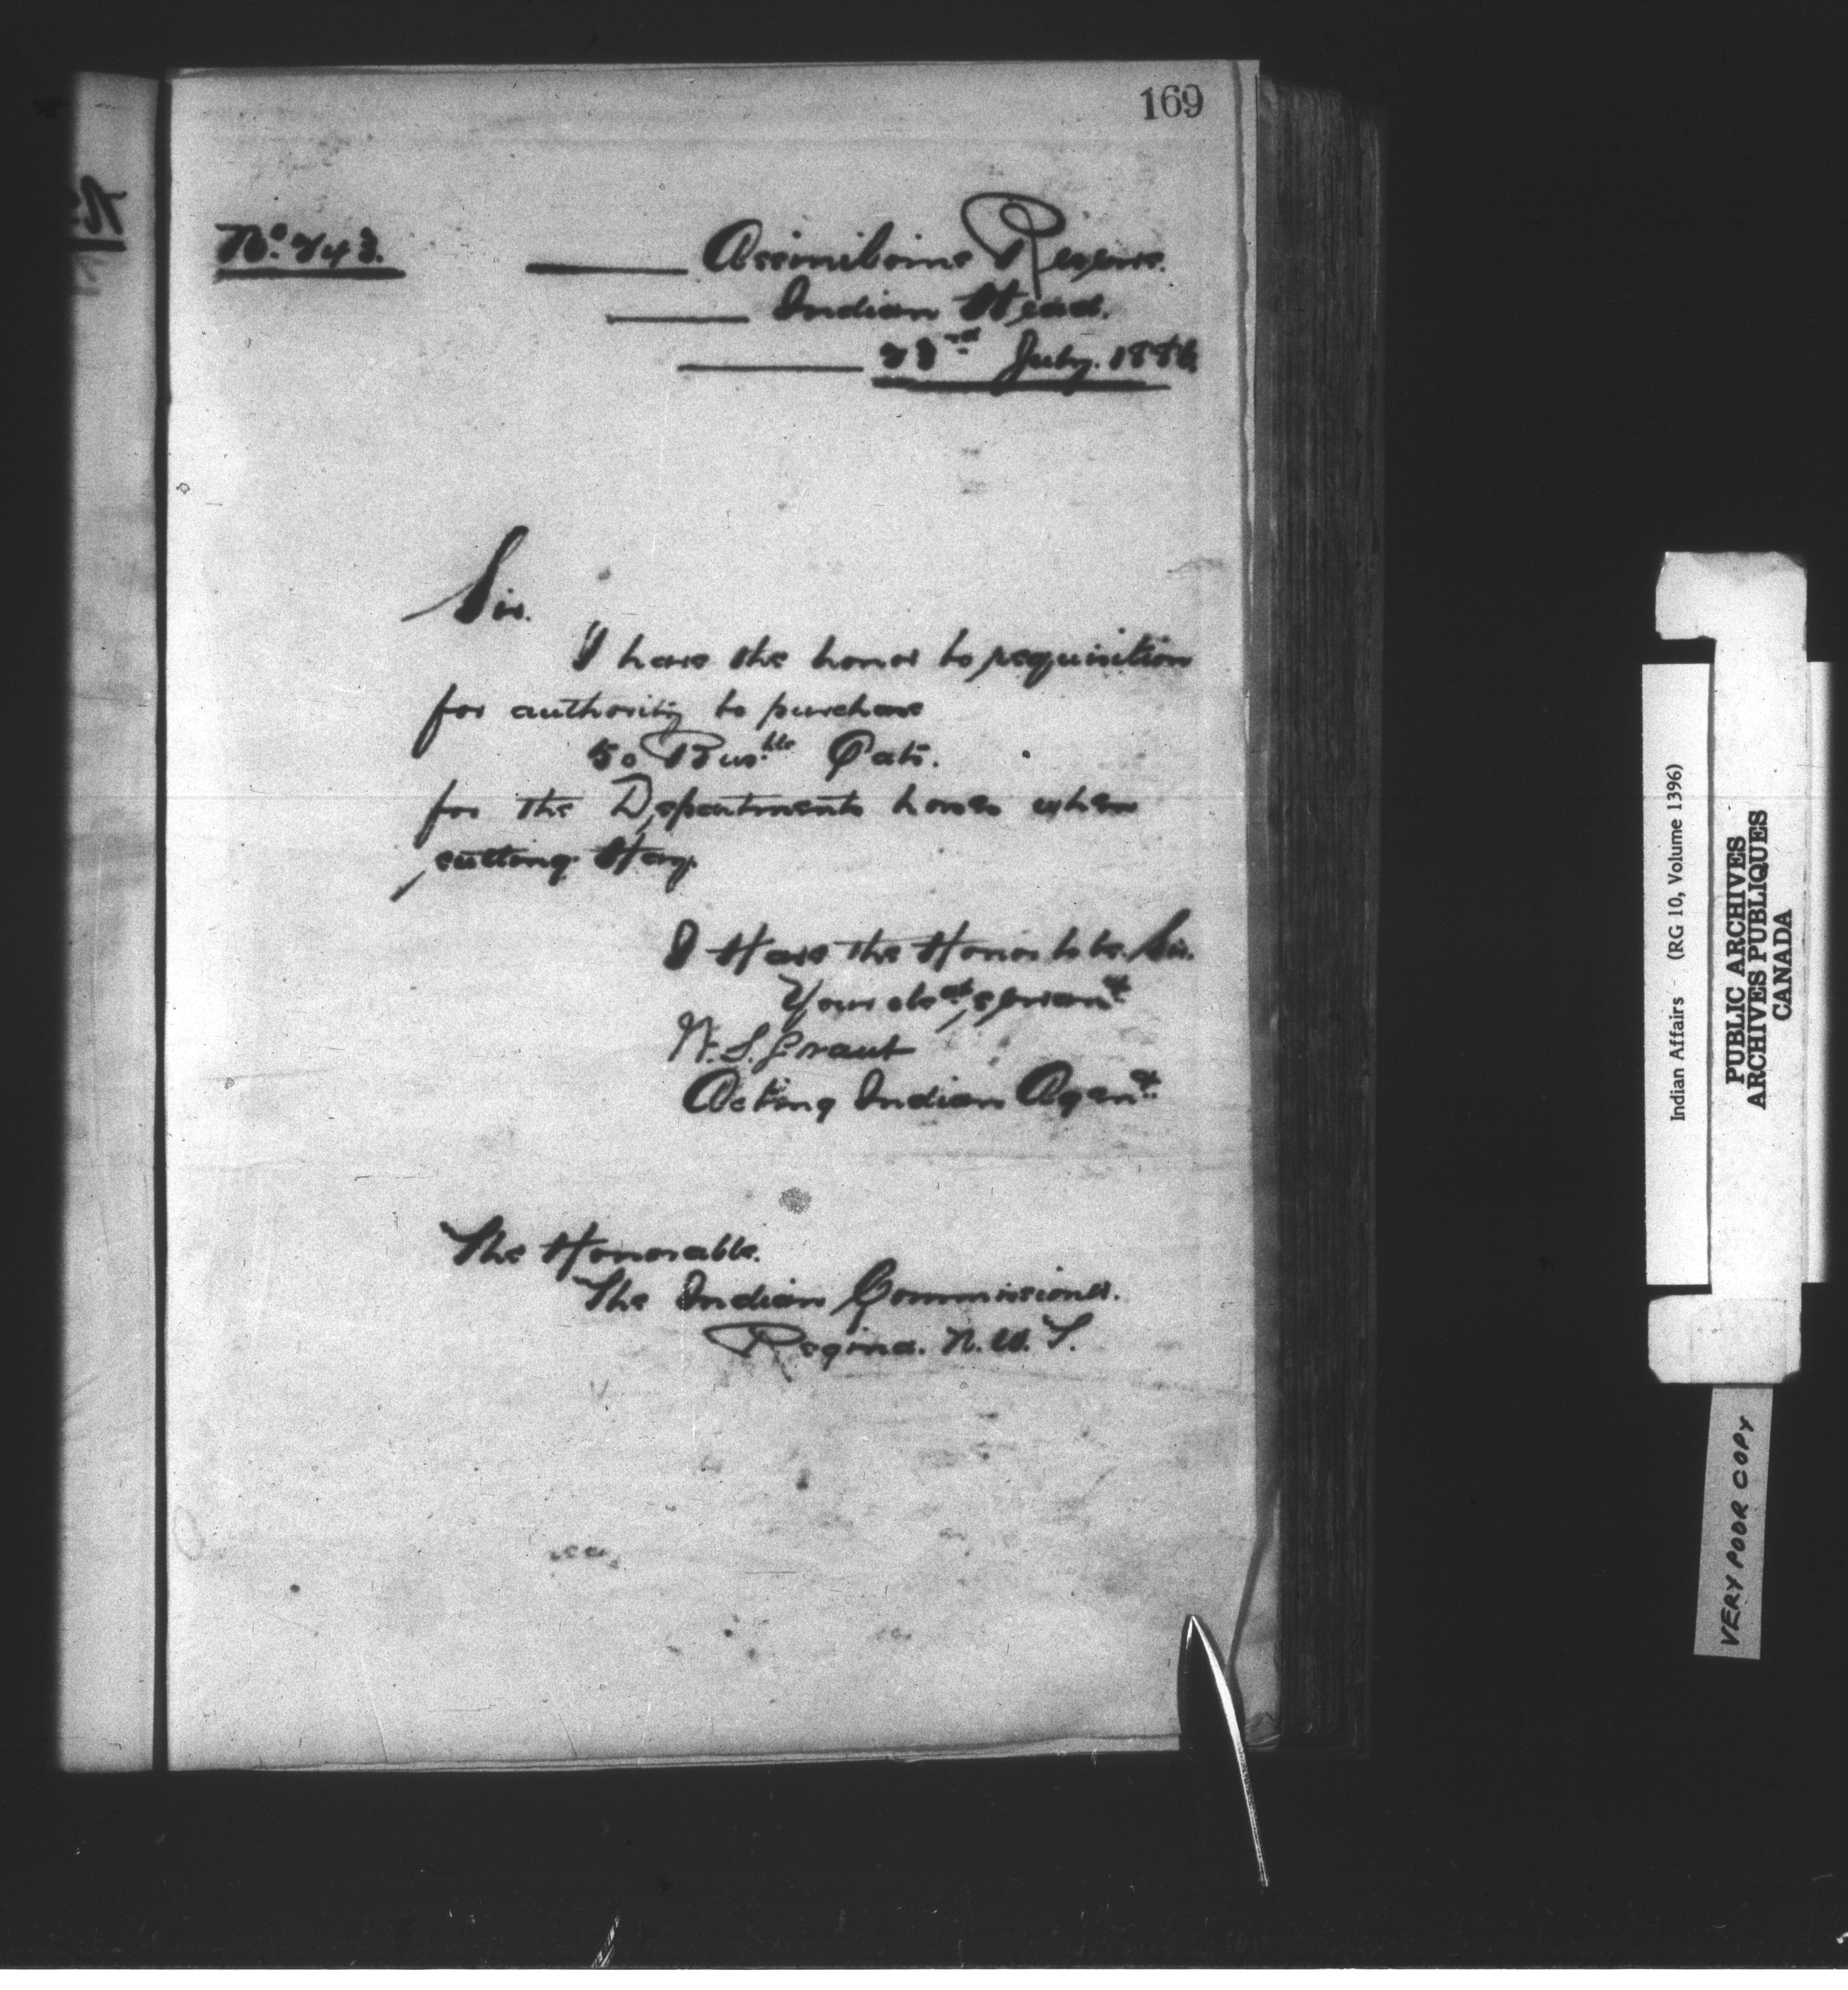 169
No. 243.
Assiniboine Reserve.
Indian Head.
23rd July. 1886
Sir.
I have the honor to requisition
for authority to purchase
50 Busbls Oats.
for the Departments horses when
cutting Hay.
I Have the Honor to be. Sir.
Your obdt servant
W. S. Grant
Acting Indian Agent.
The Honorable.
The Indian Commissioner.
Regina. N. W. T.
Indian Affairs (RG 10, Volume 1396)
PUBLIC ARCHIVES
ARCHIVES PUBLIQUES
CANADA
VERY POOR COPY